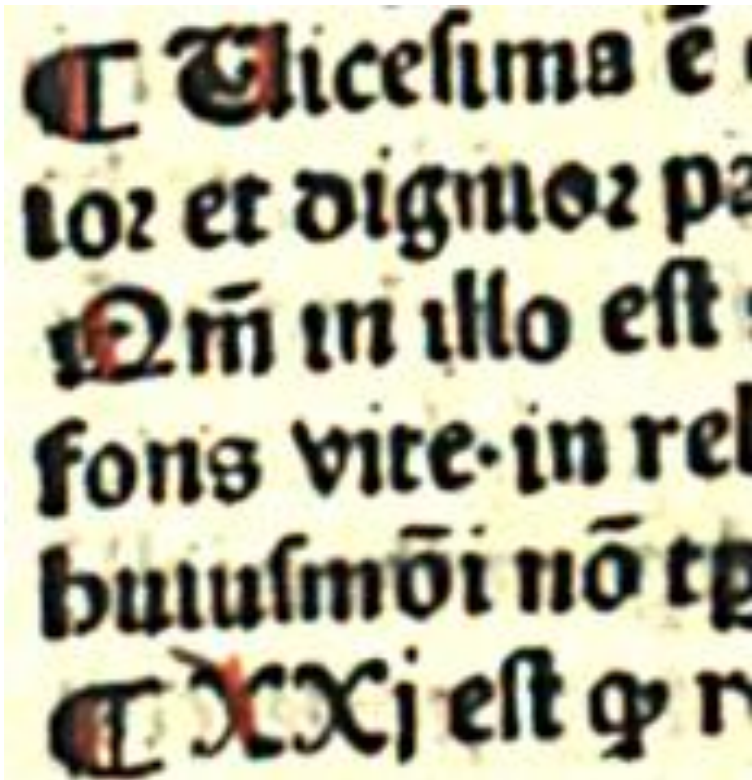 ¶ Uicesima ē
ior et dignior pa
Qm̄ in illo est
fons vite·in rel
huiusmōi nō tp
¶ XXj est ꝙ r